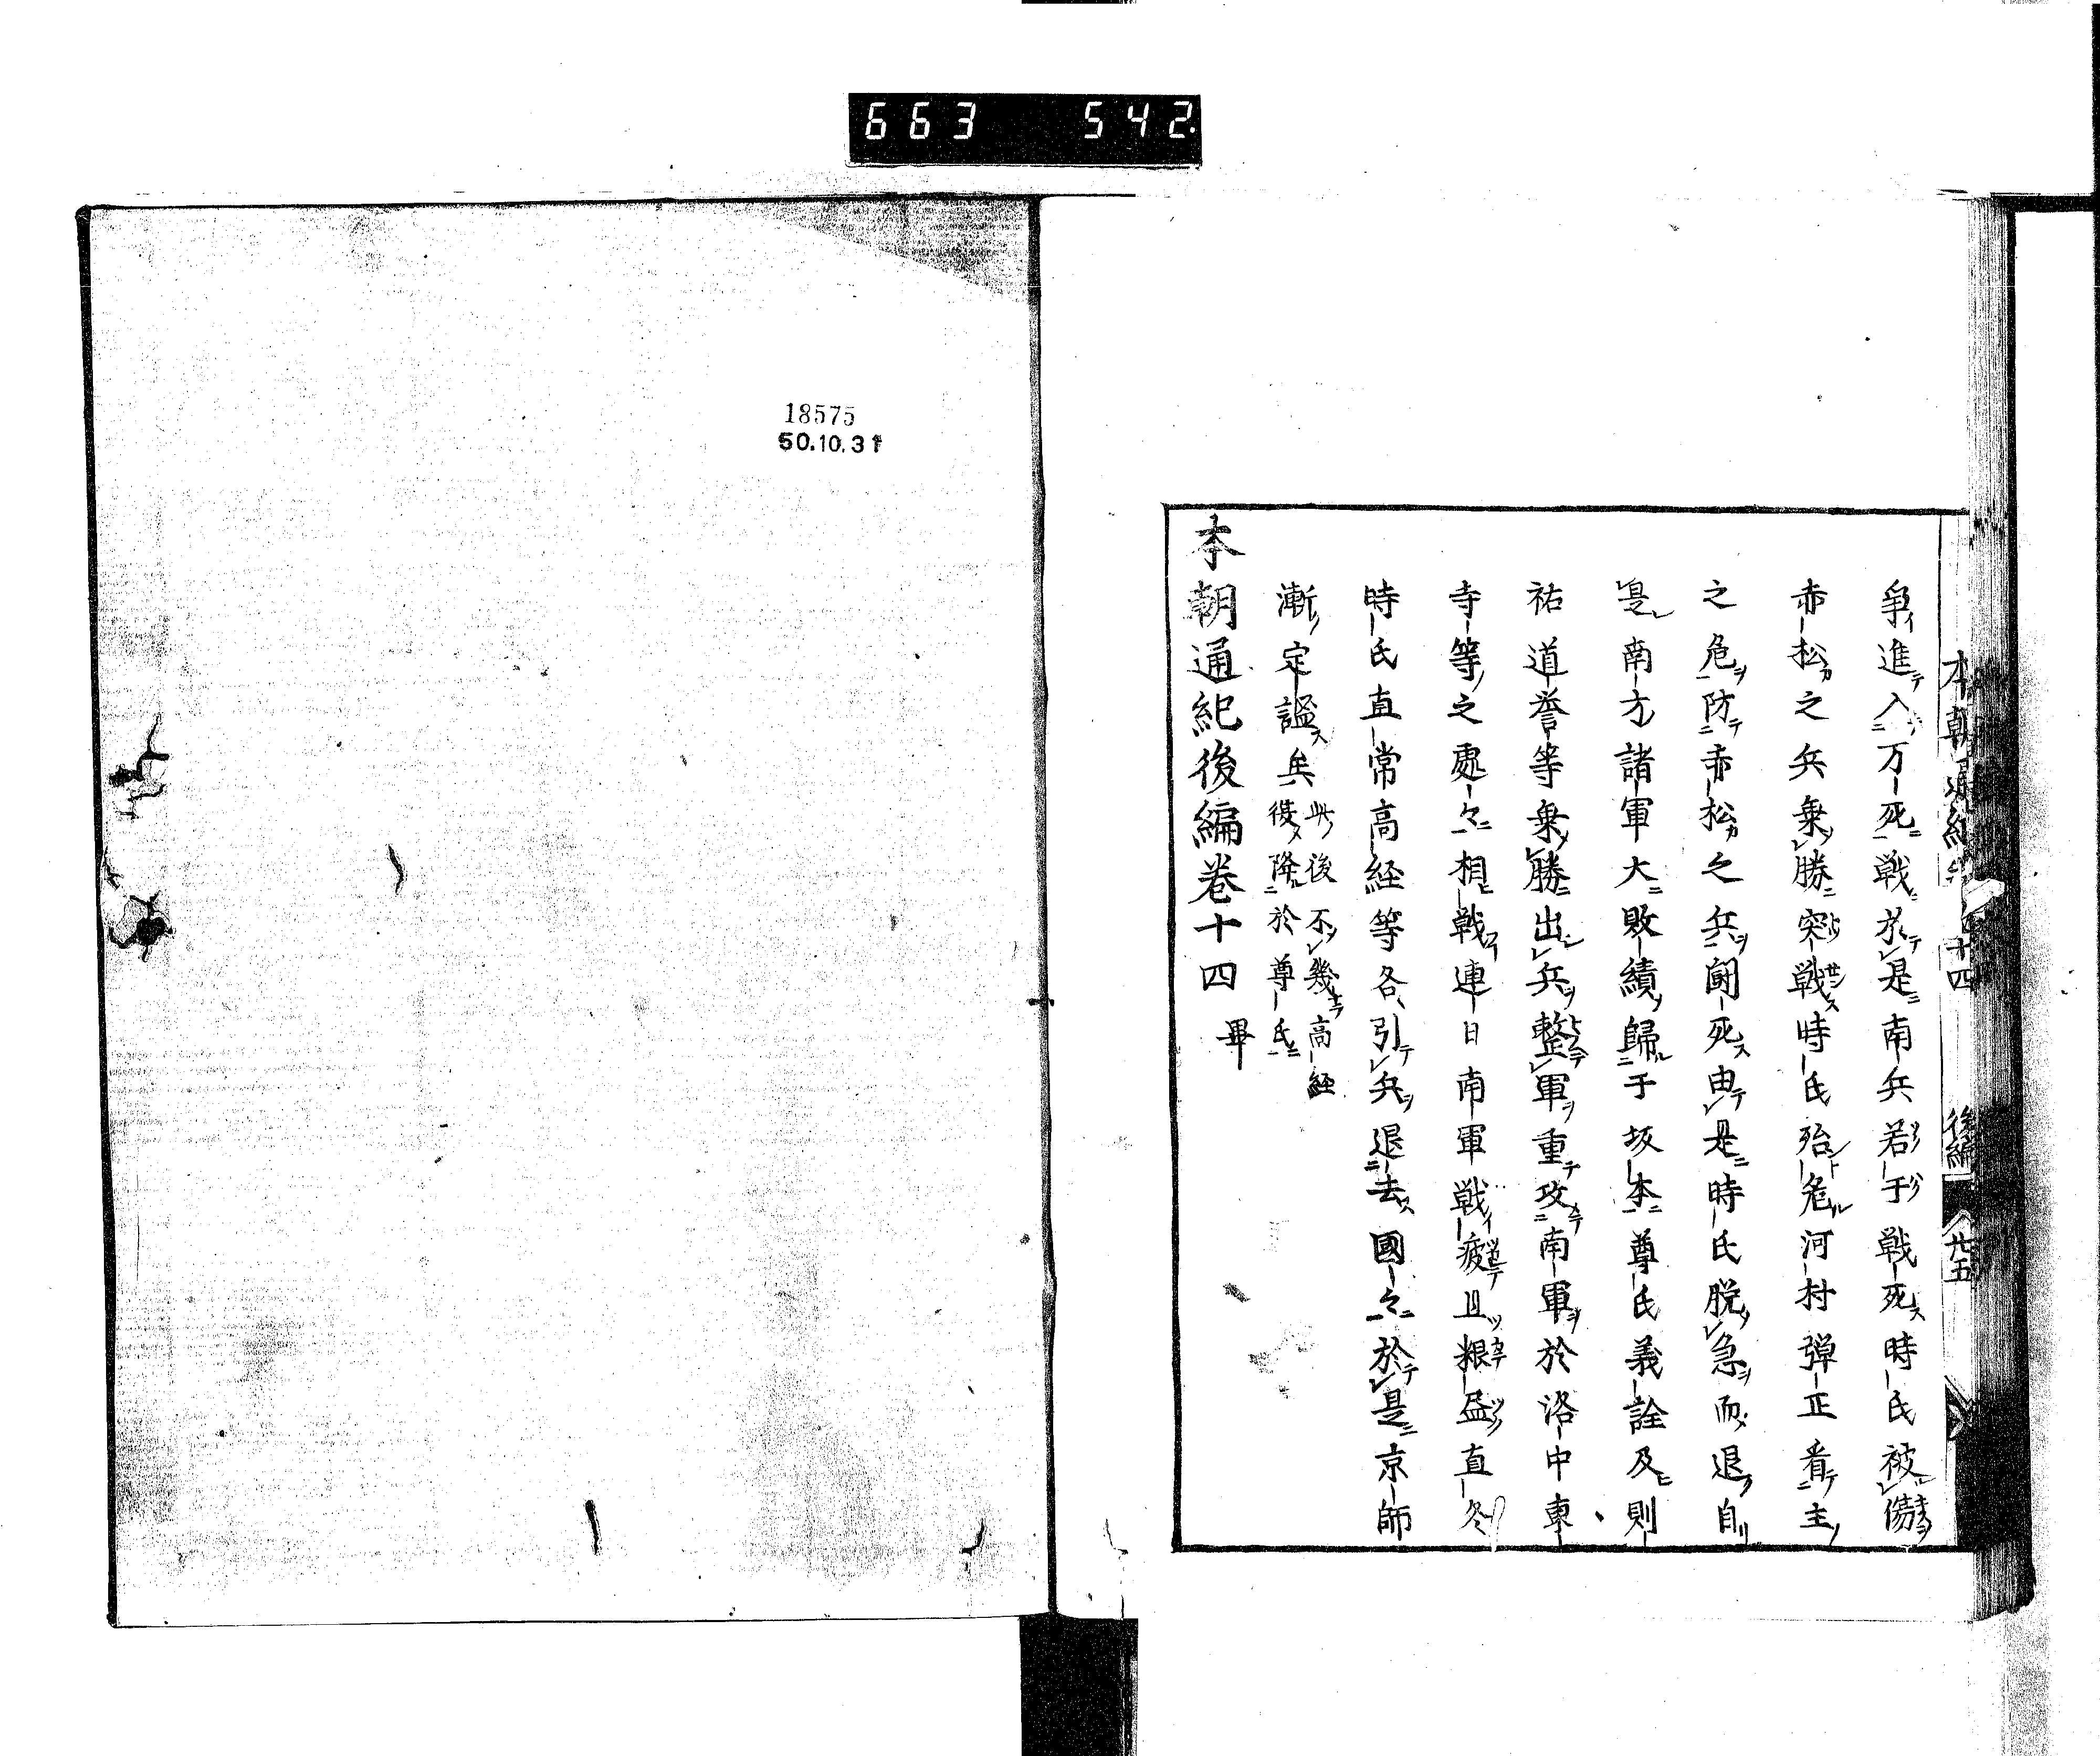 663 542.
本朝通紀 十四 後編 廿五
爭進入万死戦於是南兵若于戦死時氏被傷
赤松之兵乗勝突戦時氏殆危河村弾正看主
之危防赤松之兵闘死由是時氏脱急而退自
是南方諸軍大敗績歸于坂本尊氏義詮及則
祐道誉等乗勝出兵整軍重攻南軍於洛中東
寺等之處々相戦連日南軍戦疲且粮盡直冬
時氏直常高経等各引兵退去國々於是京師
漸定謐矣
此後不幾高経
復降於尊氏
本朝通紀後編卷十四 畢
18575
50.10.31